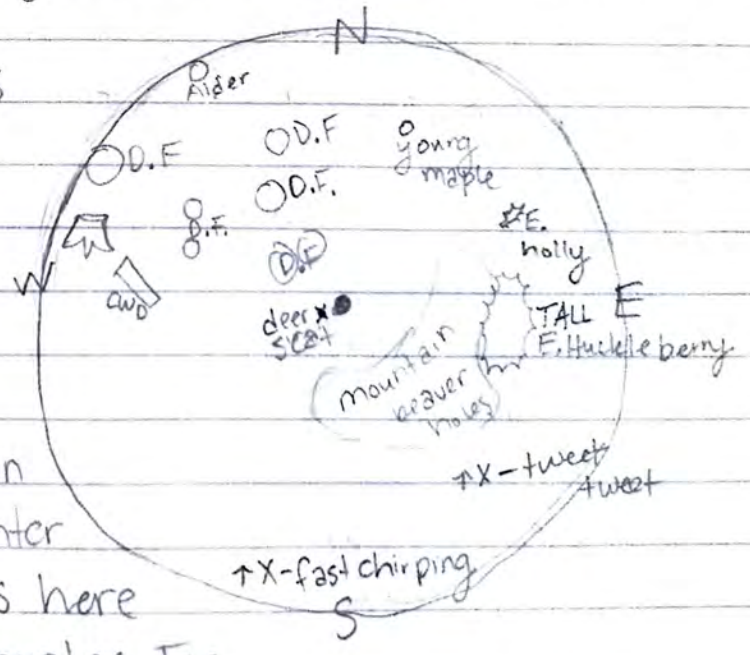 N
Alder
D.F
D.F
young
maple
D.F.
D.F.
E.
holly
D.F
W
CWD
deer x
scat
TALL E
E. Huckleberry
mountain
beaver
holes
↑X-tweet
tweet
↑X-fast chirping
S
s
n
nter
s here